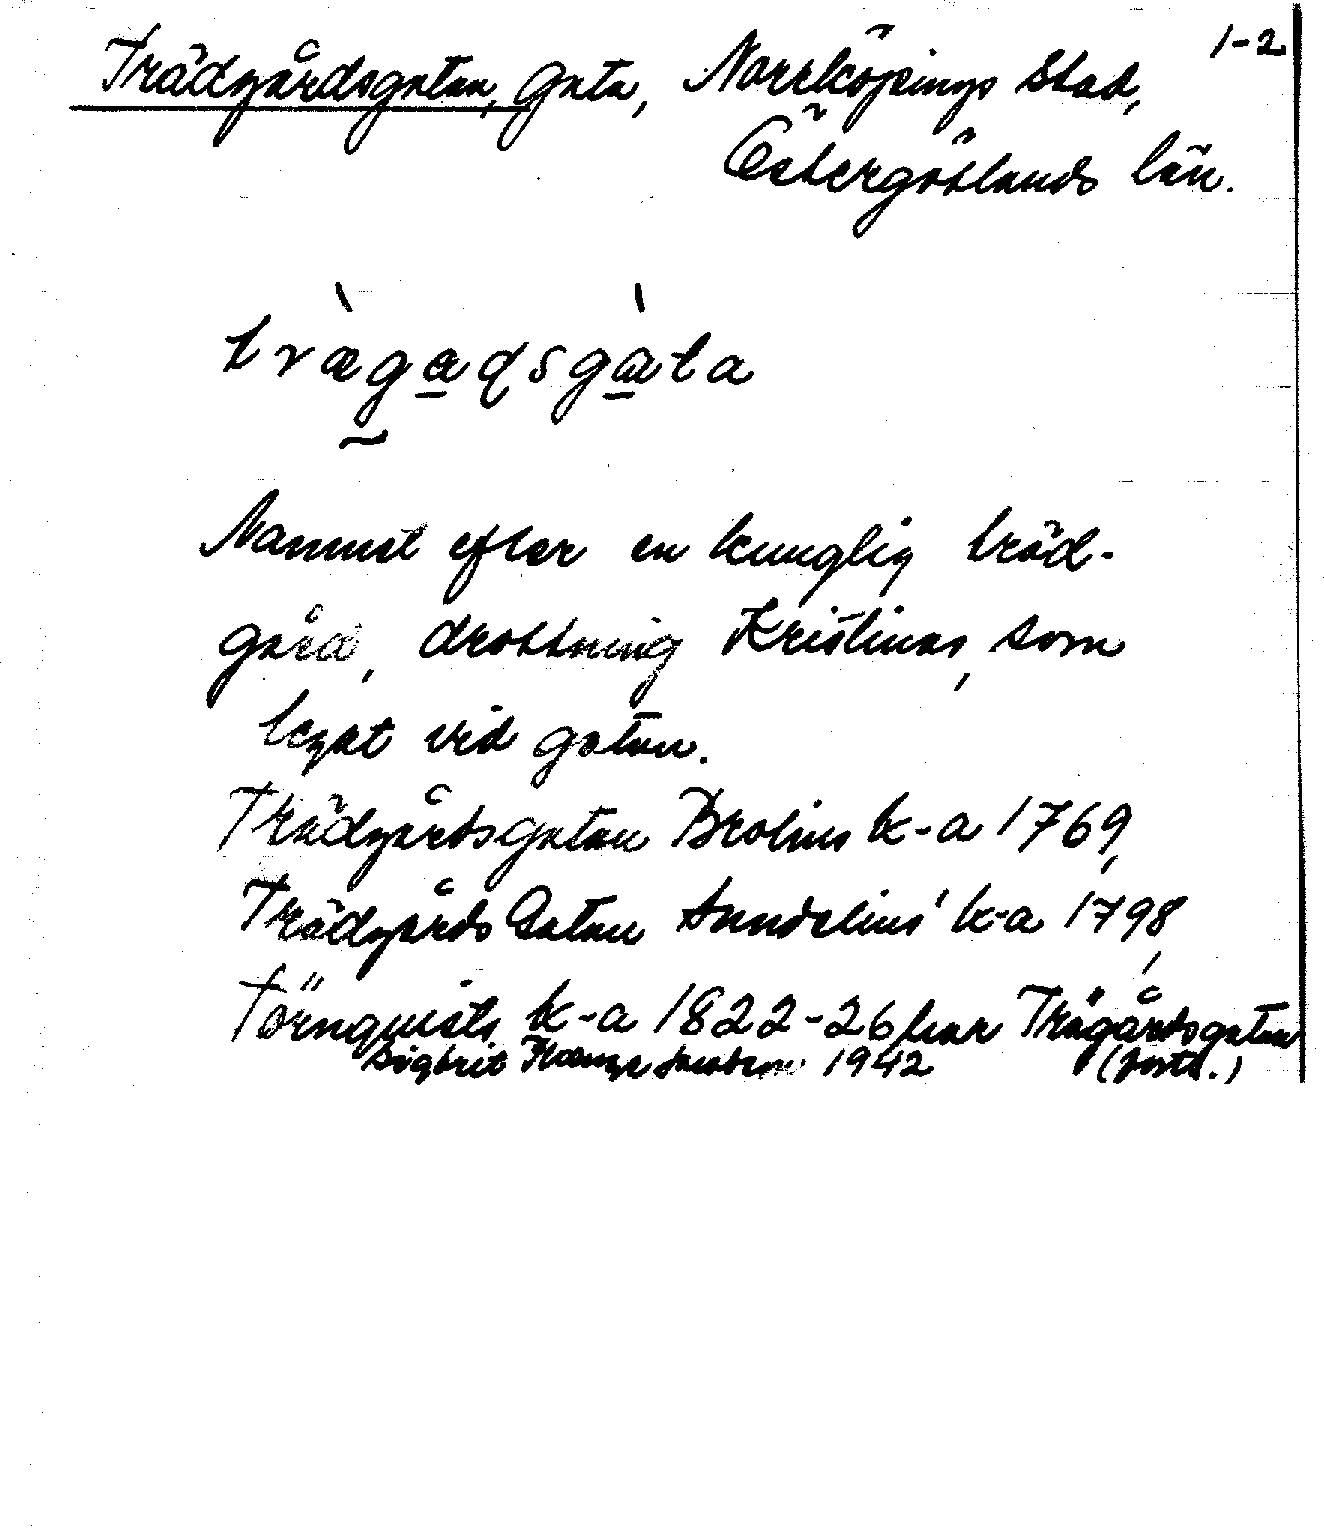 1-2
Trädgårdsgatan, Gata, Norrköpings Stad,
Östergötlands län.
trægadsgata
Namnet efter en kunglig träd-
gård, drottning Kristinas, som
legat vid gatan.
Trädgårdsgatan Brolins k-a 1769,
Trädgårds Gatan Sundelius' k-a 1798,
Törnquists k-a 1822-26 har Trägårdsgatan
Sigbrit 1942 (forts.)